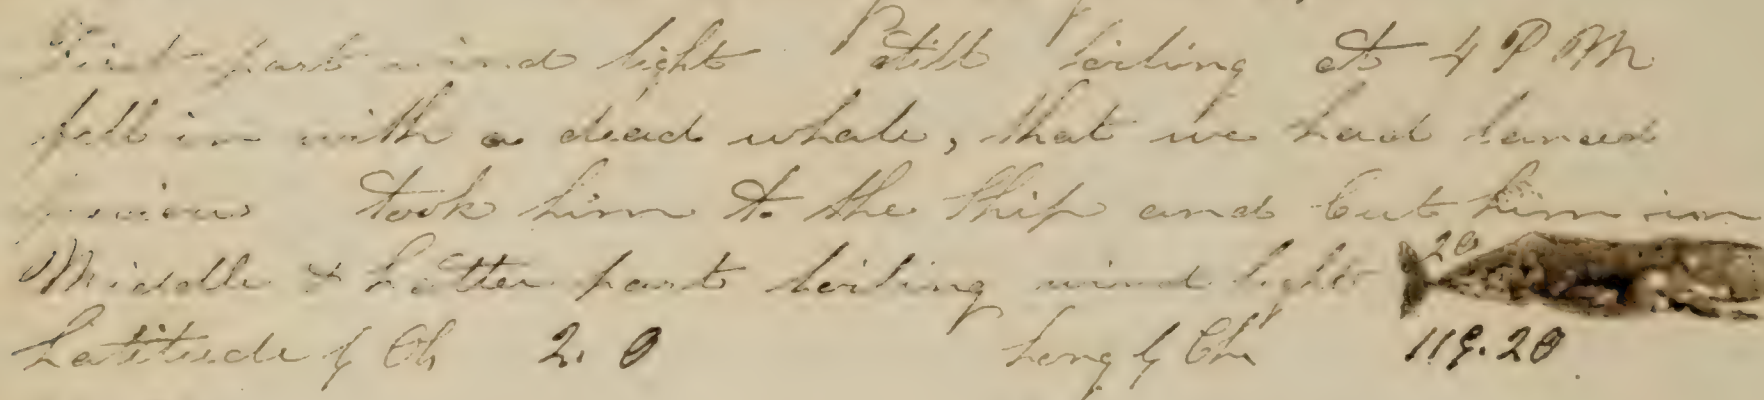 First part wind light still boiling at 4 P M
fell in with a dead whale, that we had lanced
previous took him to the Ship and Cut him in
Middle & Latter part boiling wind light 20
Latitude by Ob 2. 0 Long by Chr 119.20